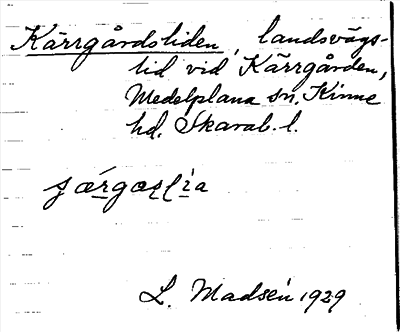 Kärrgårdsliden, landsvägs-
lid vid Kärrgården,
Medelplana sn, Kinne
hd. Skarab. l.
L. Madsén 1929